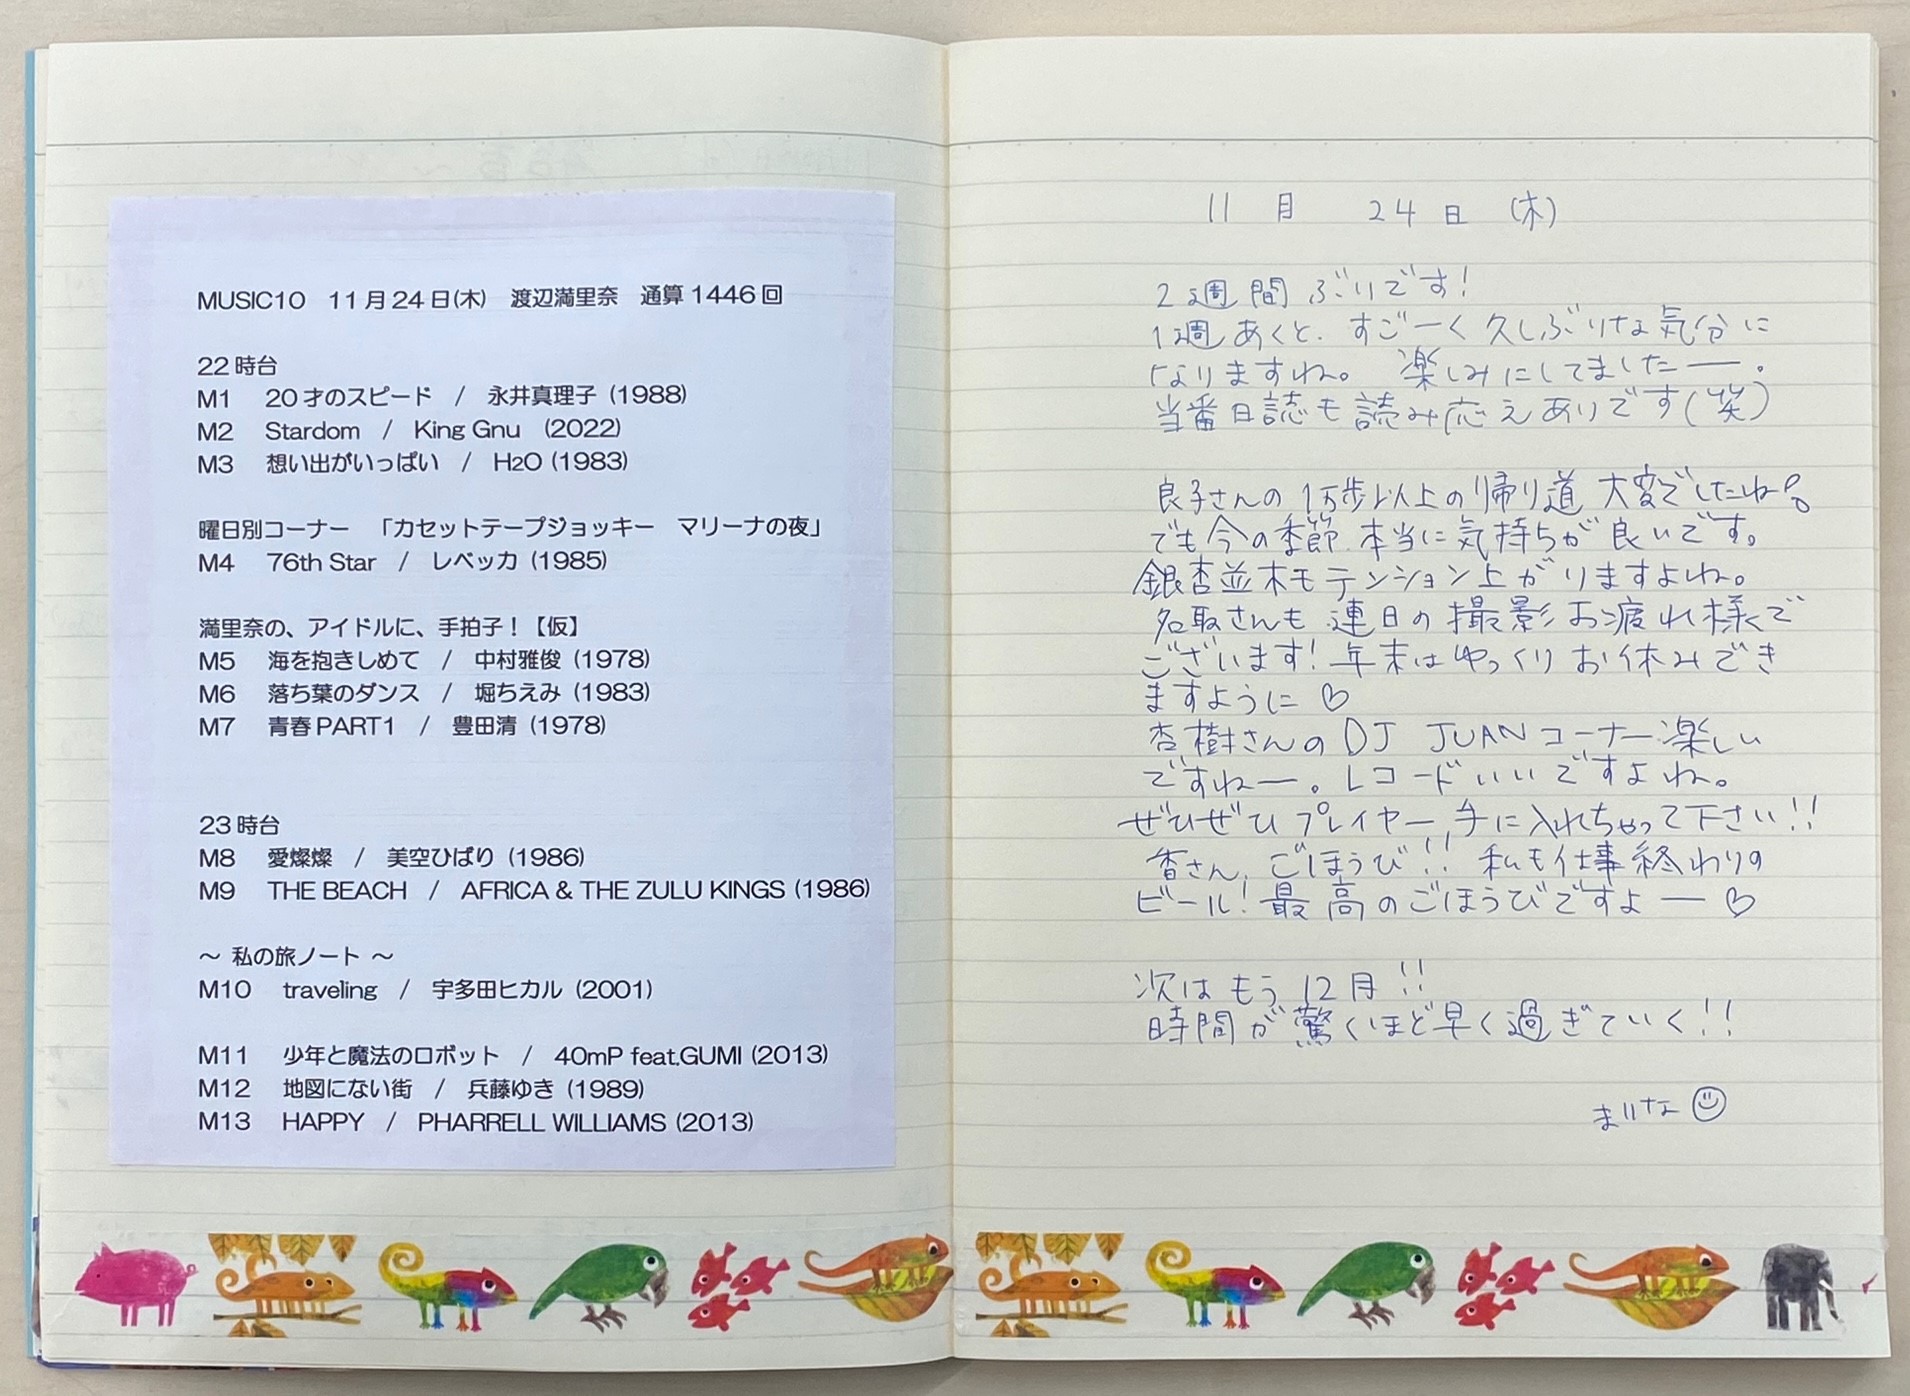 MUSIC10 11月24日(木) 渡辺満里奈 通算1446回
22時台
M1 20才のスピード / 永井真理子 (1988)
M2 Stardom / King Gnu (2022)
M3 想い出がいっぱい / H2O (1983)
曜日別コーナー 「カセットテープジョッキー マリーナの夜」
M4 76th Star / レベッカ (1985)
満里奈の、アイドルに、手拍子！【仮】
M5 海を抱きしめて / 中村雅俊 (1978)
M6 落ち葉のダンス / 堀ちえみ (1983)
M7 青春PART1 / 豊田清 (1978)
23時台
M8 愛燦燦 / 美空ひばり (1986)
M9 THE BEACH / AFRICA & THE ZULU KINGS (1986)
～ 私の旅ノート ～
M10 traveling / 宇多田ヒカル (2001)
M11 少年と魔法のロボット / 40mP feat.GUMI (2013)
M12 地図にない街 / 兵藤ゆき (1989)
M13 HAPPY / PHARRELL WILLIAMS (2013)
11月 24日 (木)
2週間ぶりです!
1週あくと、すごーく久しぶりな気分に
なりますね。 楽しみにしてましたー。
当番日誌も読み応えありです(笑)
良子さんの1万歩以上の帰り道 大変でしたね。
でも今の季節、本当に気持ちが良いです。
銀杏並木もテンション上がりますよね。
名取さんも連日の撮影お疲れ様で
ございます! 年末はゆっくりお休みでき
ますように♡
杏樹さんのDJ JUANコーナー楽しい
ですねー。レコードいいですよね。
ぜひぜひプレイヤー、手に入れちゃって下さい!!
香さん、ごほうび!! 私も仕事終わりの
ビール! 最高のごほうびですよー♡
次はもう12月!!
時間が驚くほど早く過ぎていく!!
まりな☺